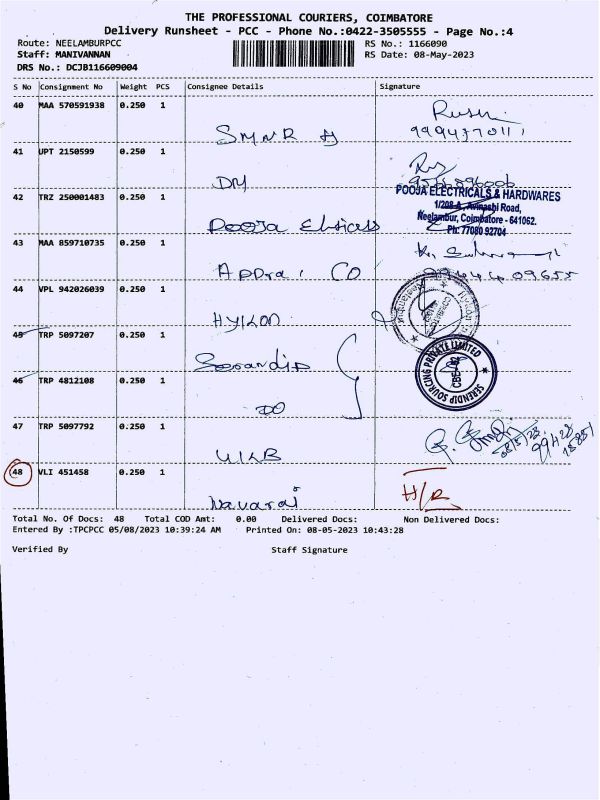 THE PROFESSIONAL COURIERS, COIMBATORE
Delivery Runsheet - PCC - Phone No.:0422-3505555 - Page No.:4
Route: NEELAMBURPCC RS No.: 1166090
Staff: MANIVANNAN RS Date: 08-May-2023
DRS No.: DCJB116609004
S No Consignment No Weight PCS Consignee Details Signature
40 MAA 570591938 0.250 1
SMNR
41 UPT 2150599 0.250 1
DM
42 TRZ 250001483 0.250 1 POOJA ELECTRICALS & HARDWARES
1/208-A, Avinashi Road,
Neelambur, Coimbatore - 641062.
Ph: 77080 92704
Pooja
43 MAA 859710735 0.250 1
CO
44 VPL 942026039 0.250 1
45 TRP 5097207 0.250 1
SERENDIP SOURCING PRIVATE LIMITED
CBE-62
46 TRP 4812108 0.250 1
DO
47 TRP 5097792 0.250 1
48 VLI 451458 0.250 1
H/R
Total No. Of Docs: 48 Total COD Amt: 0.00 Delivered Docs: Non Delivered Docs:
Entered By :TPCPCC 05/08/2023 10:39:24 AM Printed On: 08-05-2023 10:43:28
Verified By Staff Signature